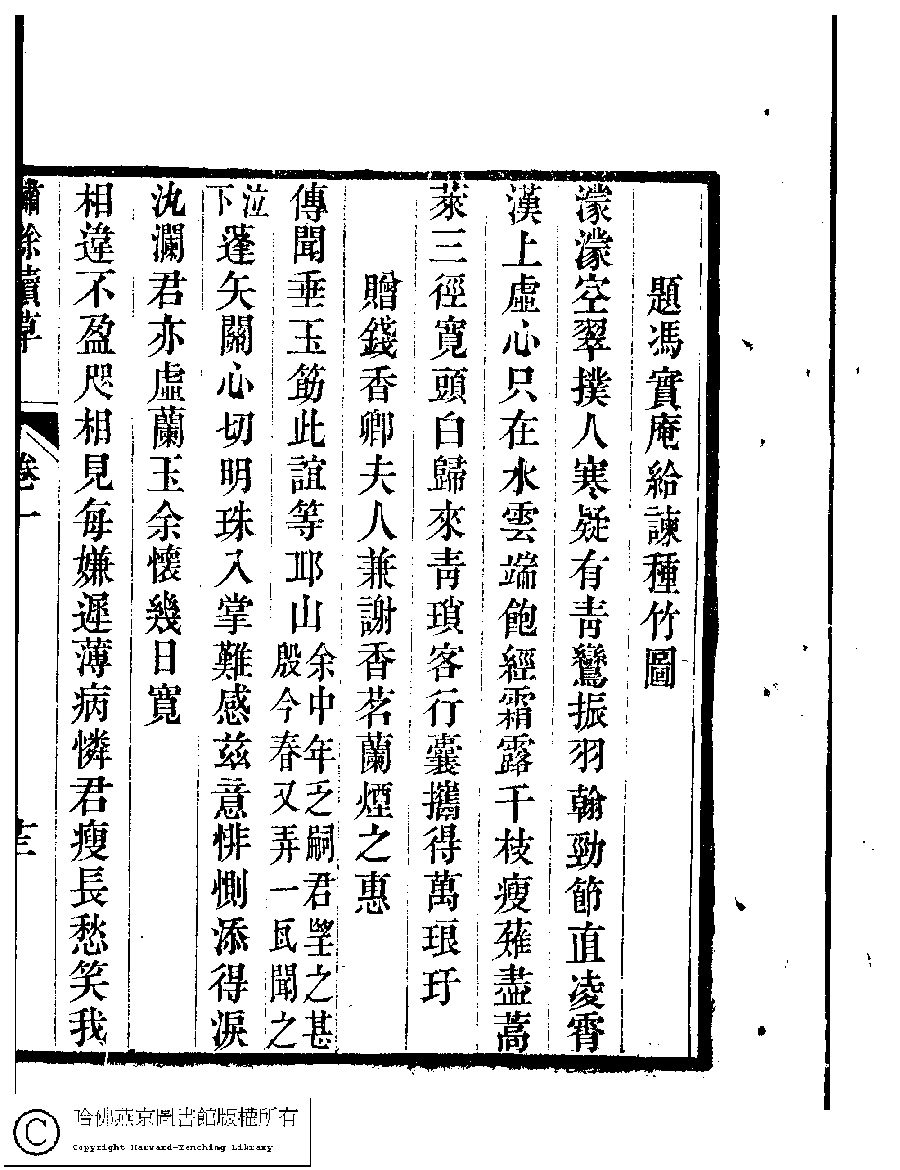 題馮實庵給諫種竹圖
濛濛空翠撲人寒疑有青鸞振羽翰勁節直凌霄
漢上虛心只在水雲端飽經霜露千枝瘦薙盡蒿
萊三徑寛頭白歸來靑瑣客行囊攜得萬琅玕
贈錢香卿夫人兼謝香茗蘭煙之惠
傳聞垂玉筯此誼等邱山余中年乏嗣君望之甚
殷今春又弄一瓦聞之
泣
下蓬矢關心切明珠入掌難感茲意悱惻添得淚
汍瀾君亦虛蘭玉余懷幾日寛
相違不盈咫相見每嫌遲薄病憐君瘦長愁笑我
餘續草
卷一
十三
哈佛燕京圖書館版權所有
Copyright Harvard-Yenching Library